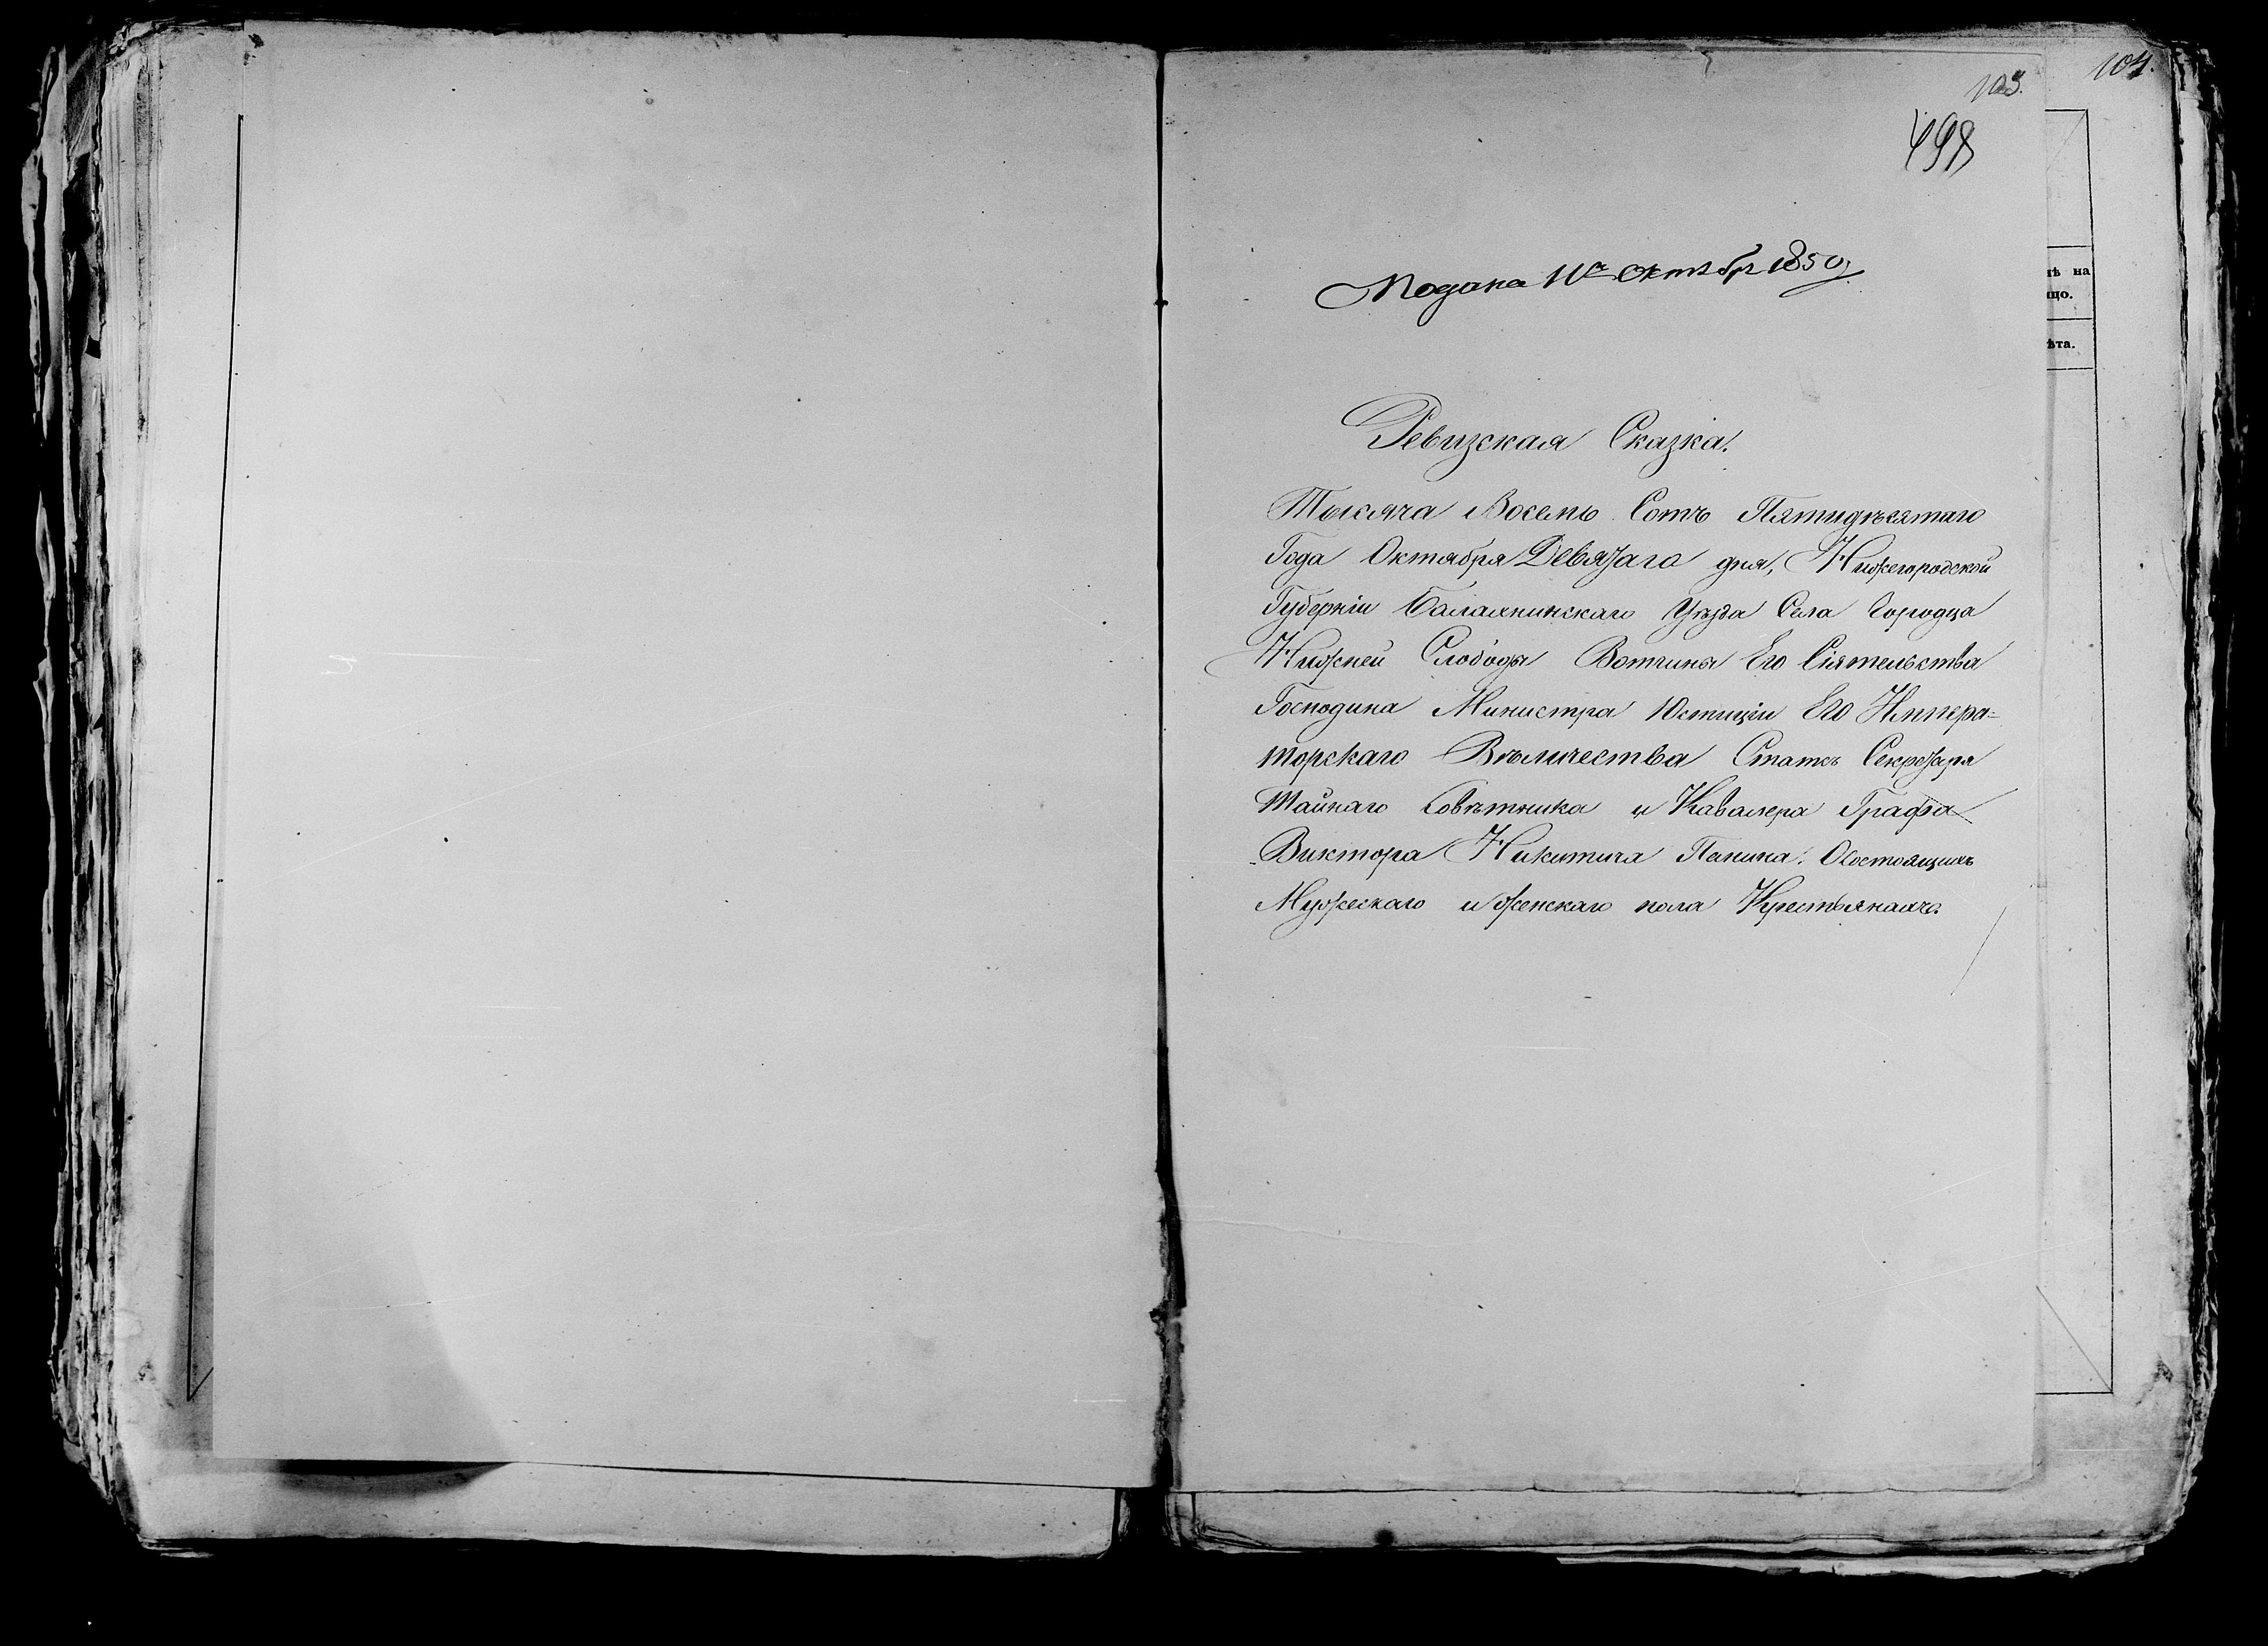 103.
104.
498
Подана 11го Октября 1850 г.
нѣ на
ицо.
ѣта.
Ревизская Сказка.
Тысяча Восемь Сотъ Пятидѣсятаго
Года Октября Девятаго дня, Нижегородской
Губерніи Балахнинскаго Уѣзда Села Городца
Нижней Слободы Вотчины Его Сіятельства
Господина Министра Юстиціи Его Импера=
торскаго Вѣличества Статсъ Секретаря
Тайнаго Совѣтника и Кавалера Графа
Виктора Никитича Панина. О состоящихъ
Мужескаго и женскаго пола Крестьянахъ.